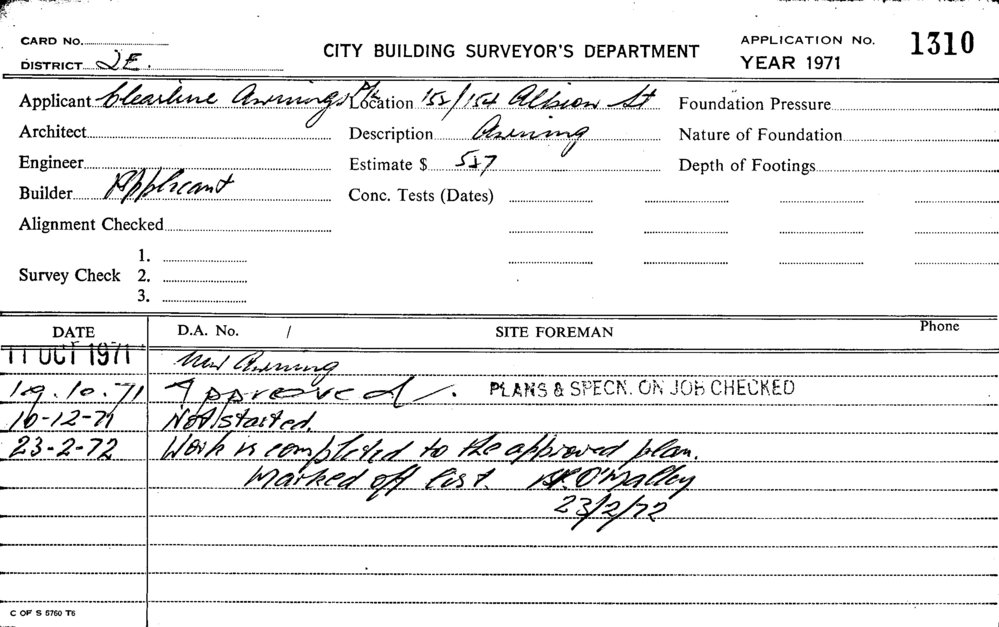 CARD No.
DISTRICT 2E.
CITY BUILDING SURVEYOR'S DEPARTMENT
APPLICATION No. 1310
YEAR 1971
Applicant Clearline Awnings P/L Location 152/154 Albion St Foundation Pressure
Architect Description Awning Nature of Foundation
Engineer Estimate $ 527 Depth of Footings
Builder Applicant Conc. Tests (Dates)
Alignment Checked
1.
Survey Check 2.
3.
DATE D.A. No. / SITE FOREMAN Phone
11 OCT 1971 New Awning
19.10.71 Approved. PLANS & SPECN. ON JOB CHECKED
10-12-71 Not started.
23-2-72 Work is completed to the approved plan.
Marked off list. O'Malley
23/2/72
C OF S 5760 T6